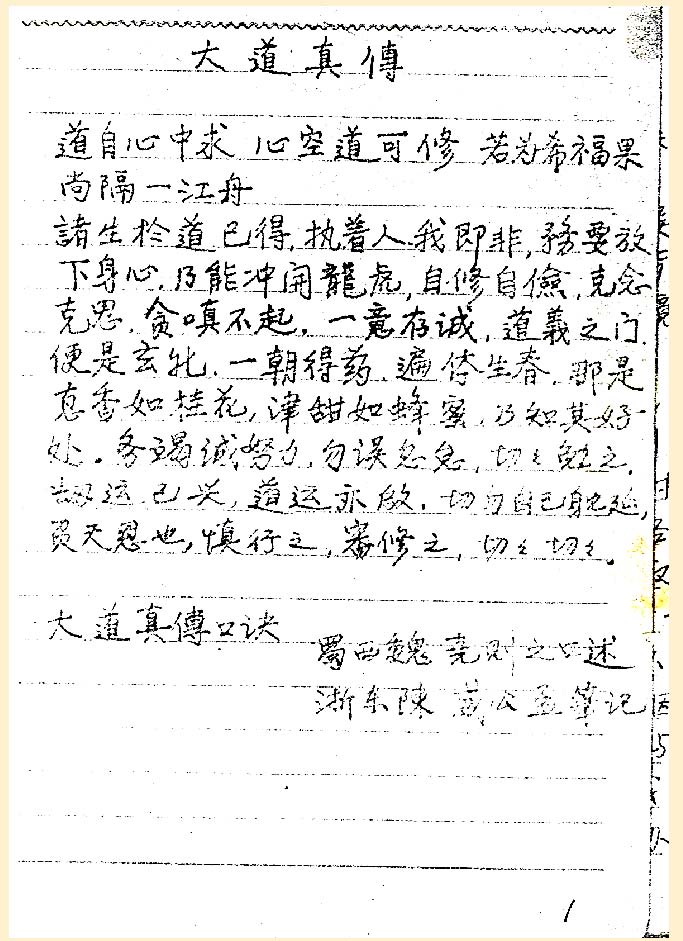 大道真傳
道自心中求 心空道可修 若为希福果
尚隔一江舟
諸生於道已得,执着人我即非,務要放
下身心,乃能冲開龍虎,自修自儉,克念
克思,貪嗔不起,一意存诚,道義之门,
便是玄牝,一朝得药,遍体生春,那是
息香如桂花,津甜如蜂蜜,乃知其好
处。务竭诚努力,勿误怱怱,切々勉之,
劫运已兴,道运亦啟,切勿自己躭延,
負天恩也,慎行之,審修之,切々切々。
大道真傳口诀
蜀西魏堯则之口述
浙东陳 公孟筆记
1